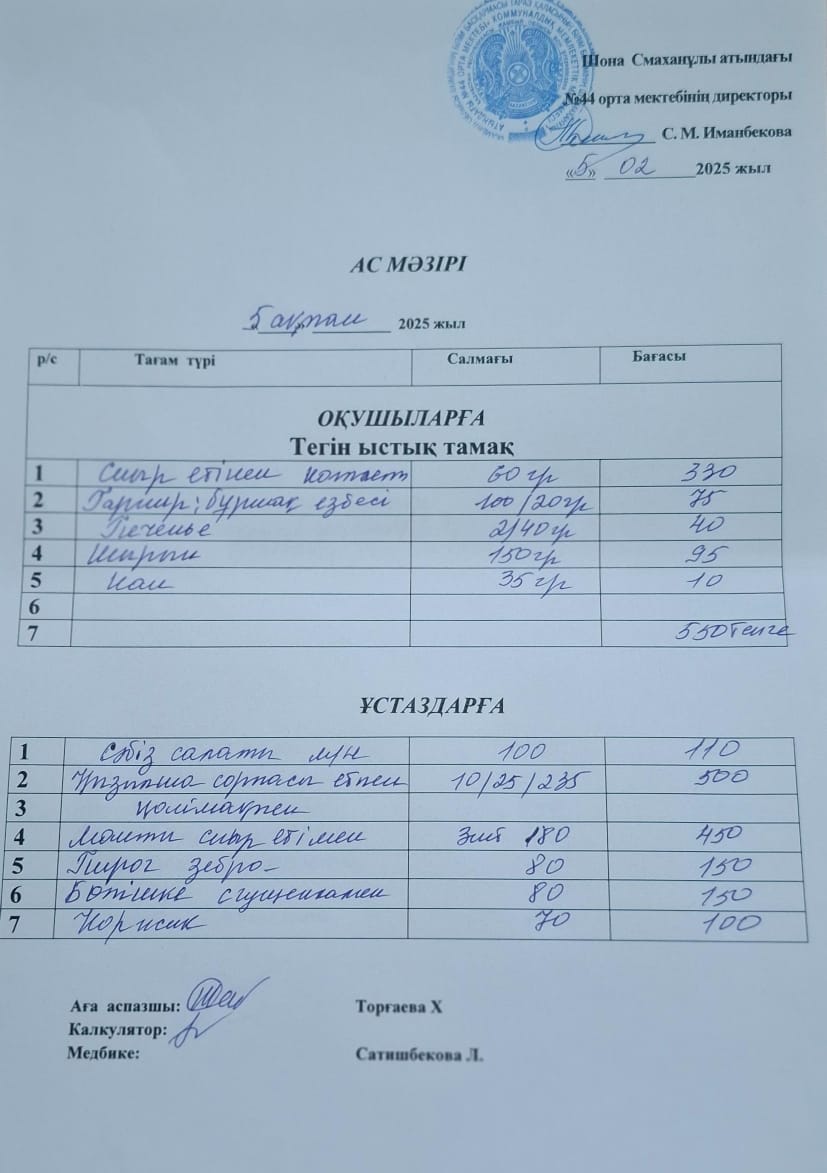 Шона Смаханұлы атындағы
№44 орта мектебінің директоры
С. М. Иманбекова
«5» 02 2025 жыл
АС МӘЗІРІ
«5» ақпан 2025 жыл
р/с Тағам түрі Салмағы Бағасы
ОҚУШЫЛАРҒА
Тегін ыстық тамақ
1 Сиыр етінен котлет 60 гр 330
2 Гарнир: бұршақ езбесі 100/20гр 75
3 Печенье 2/40гр 40
4 Шырын 150гр 95
5 Нан 35 гр 10
6
7 550 Тенге
ҰСТАЗДАРҒА
1 Сәбіз салаты 100 110
2 сорпасы етпен 10/25/235 500
3
4 Манты сиыр етімен 180 450
5 Пирог зебра 80 150
6 сгущенкамен 80 150
7 70 100
Аға аспазшы: Торғаева Х
Калкулятор:
Медбике: Сатишбекова Л.